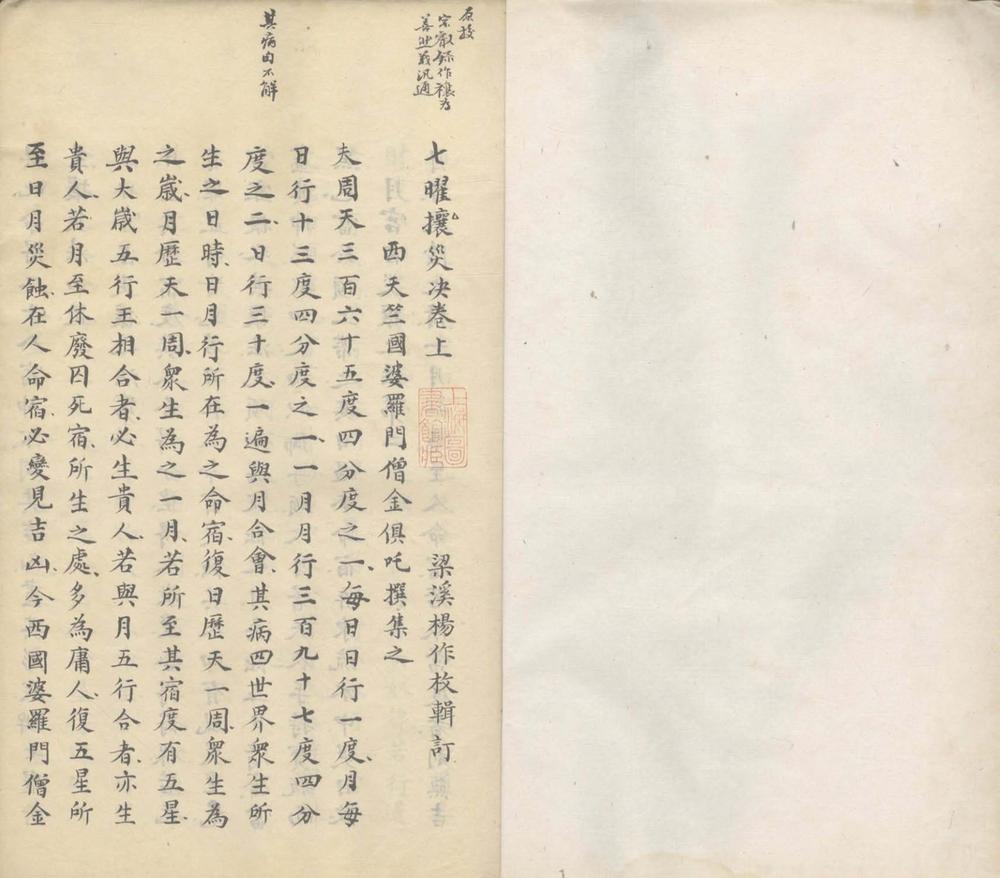 原校
宗叡錄作禳為
善此義汎通
其病由不解
七曜攘災决卷上 梁溪楊作枚輯訂
西天竺國婆羅門僧金俱吒撰集之
夫周天三百六十五度四分度之一每日日行一度月每
日行十三度四分度之一一月月行三百九十七度四分
度之二日行三十度一遍與月合會其病四世界衆生所
生之日時日月行所在為之命宿復日歷天一周衆生為
之歲月歷天一周衆生為之一月若所至其宿度有五星
與大歲五行王相合者必生貴人若與月五行合者亦生
貴人若月至休廢囚死宿所生之處多為庸人復五星所
至日月災蝕在人命宿必變見吉凶今西國婆羅門僧金
上海圖
書館藏